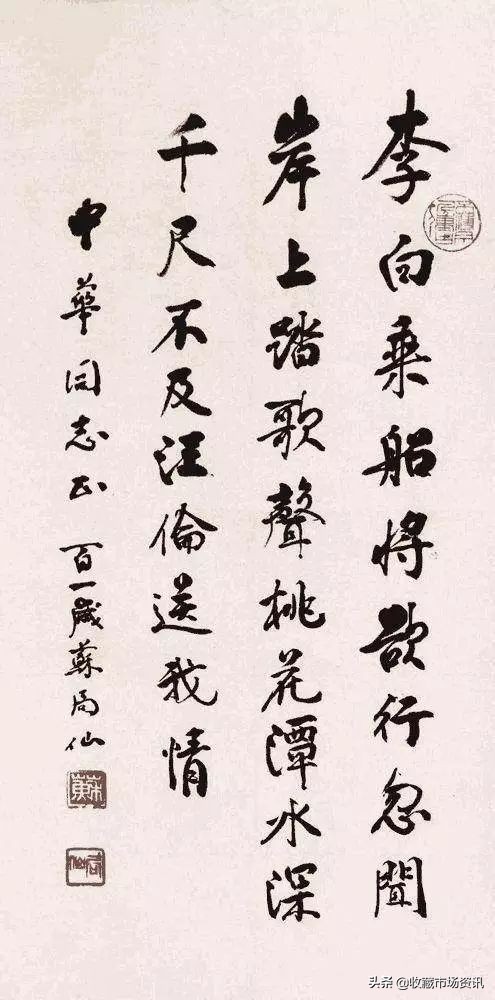 李白乘船将欲行忽聞
岸上踏歌聲桃花潭水深
千尺不及汪倫送我情
中華同志正 百一歲蘇局仙
蘇
局仙
头条 @收藏市场资讯